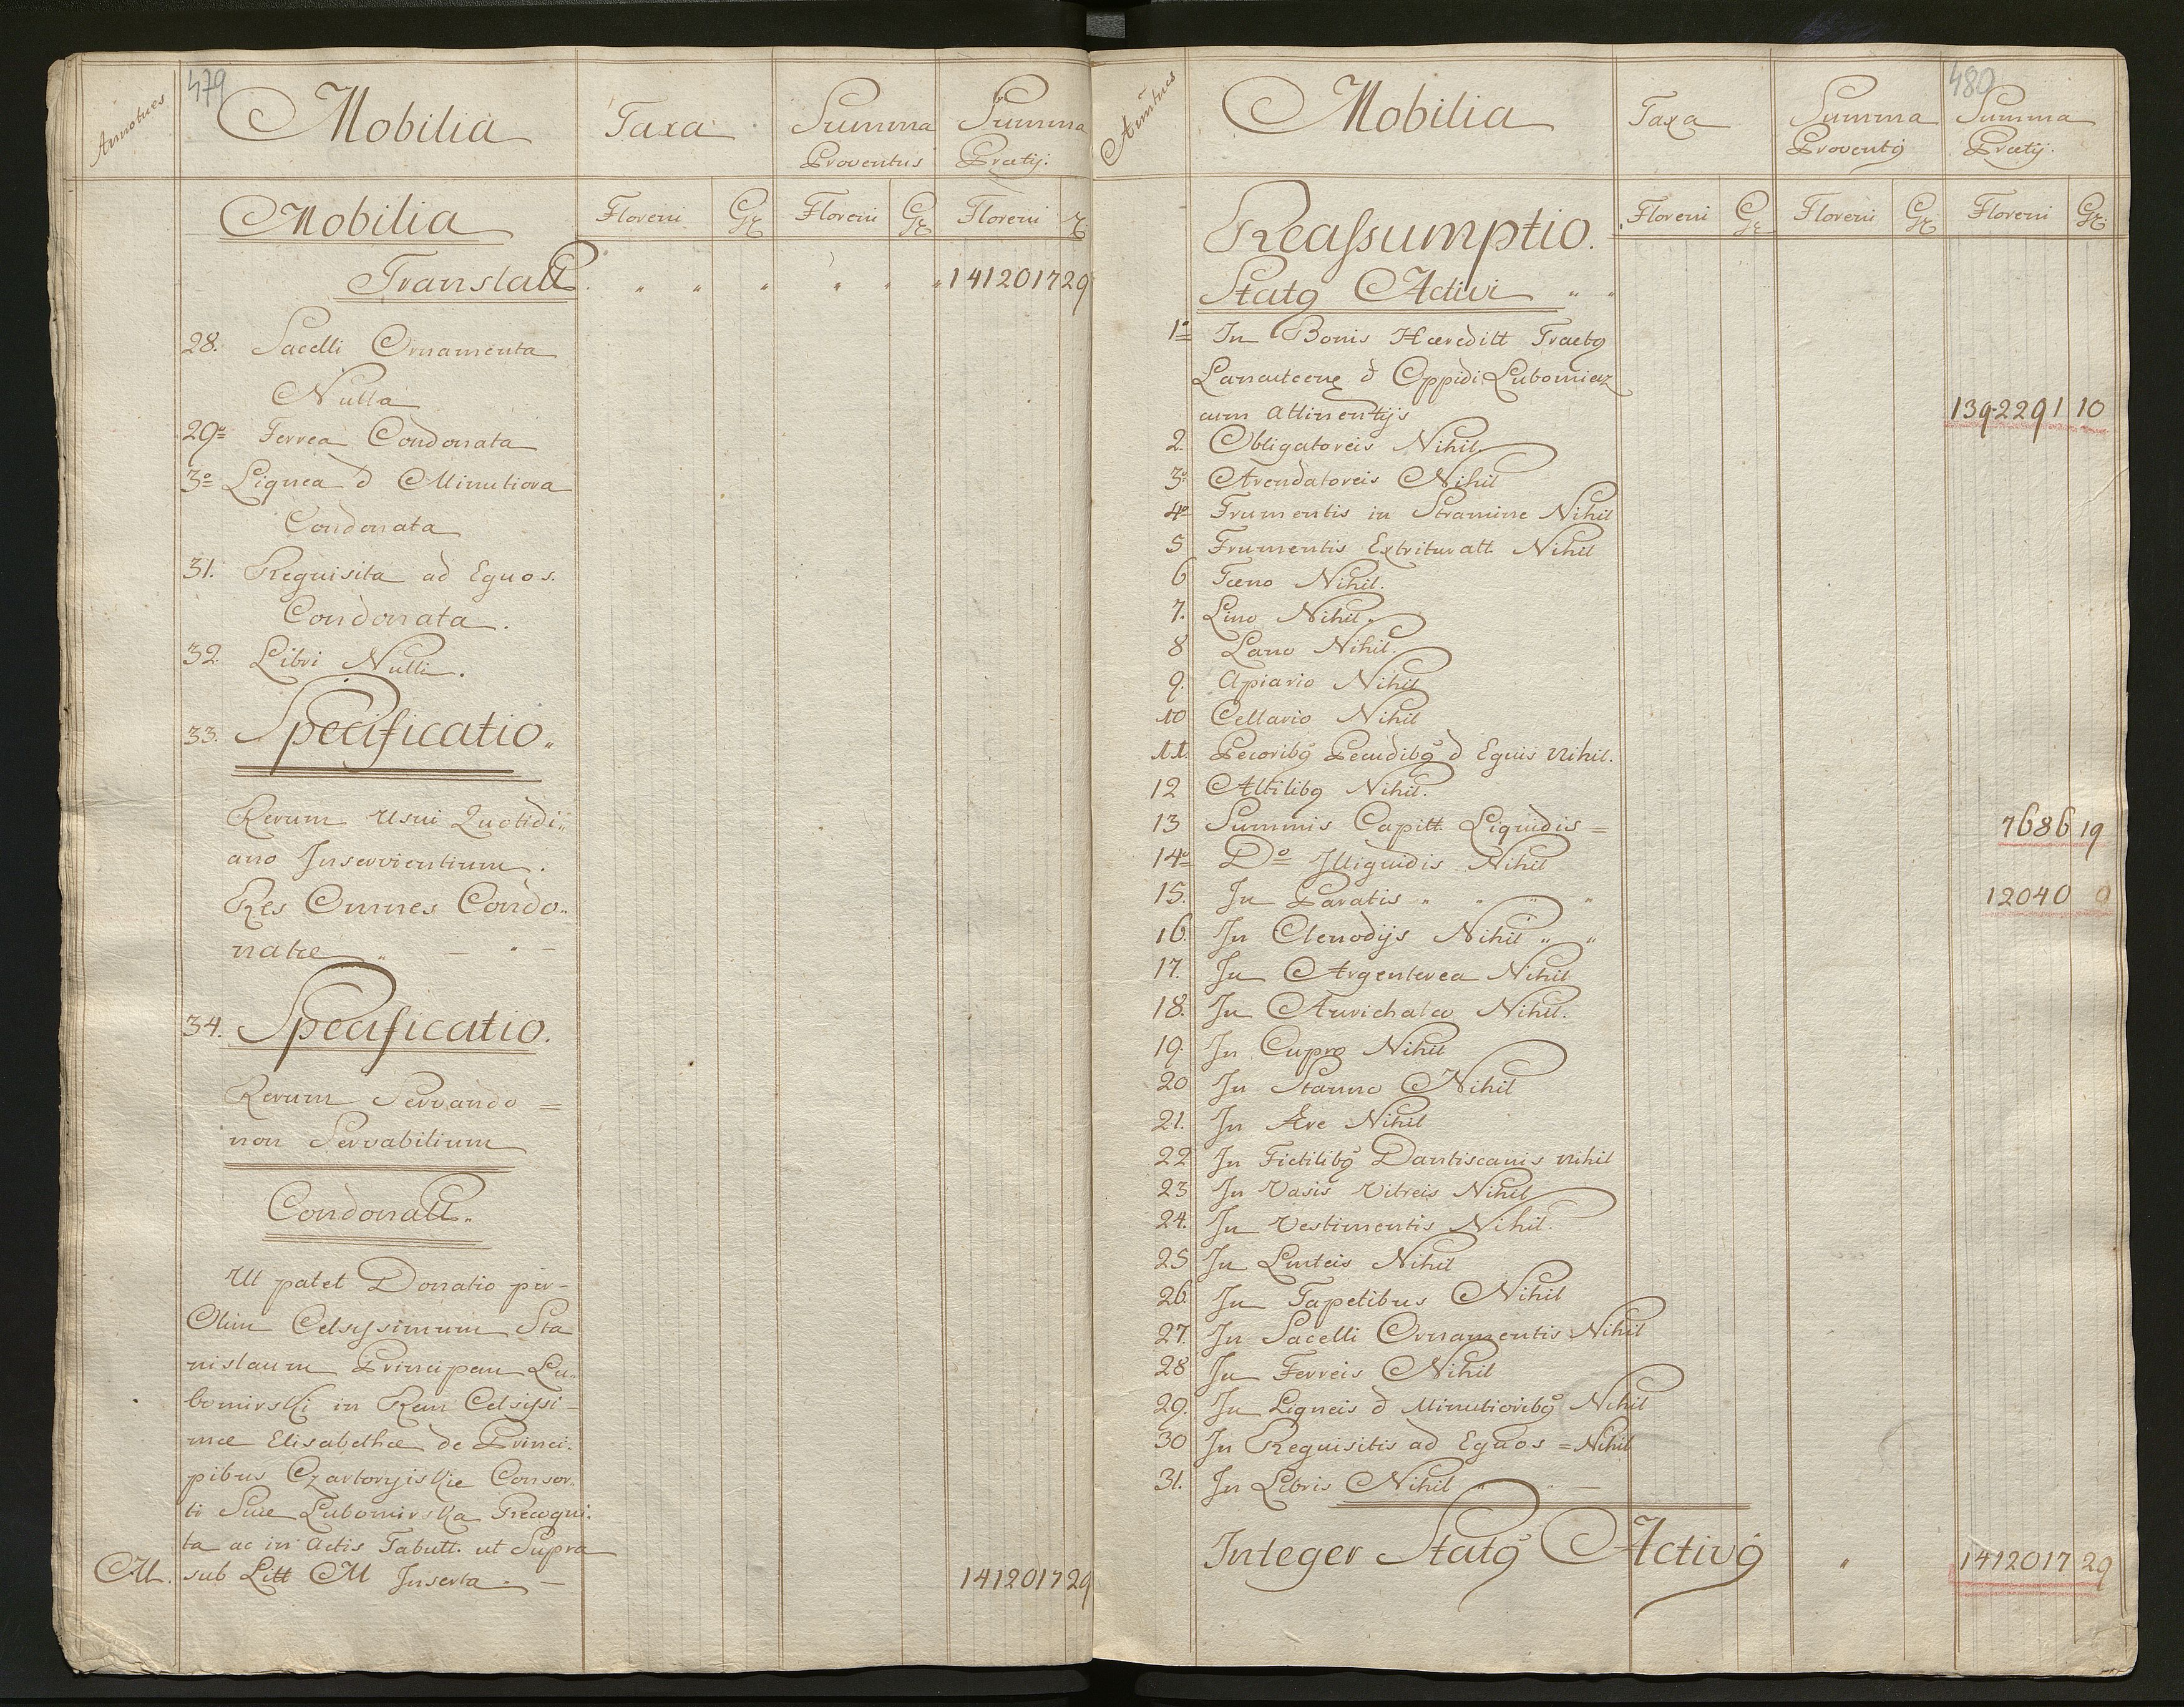 479
Mobilia
Taxa
Summa
Proventus
Summa
Prætij.
Mobilia
Floreni
Gr
Floreni
Gr
Floreni
Translatt
1412017 29
28. Sacelli Ornamenta
Nulla
29º Ferrea Condonata
3º Lignea & Minutiora
Condonata
31. Requisita ad Equos.
Condonata.
32. Libri Nulli.
33. Specificatio.
Rerum Usui Quotidi„
ano Inservientium.
Res Omnes Condo„
natæ
34. Specificatio.
Rerum Servando =
non Servabilium
Condonatt.
Ut patet Donatio per-
Olim Celsissimum Sta
nislaum Principem Lu-
bomirski in Rem Celsissi-
mæ Elisabethæ de Princi-
pibus Czartoryiskie Consor-
ti Suæ Lubomirska Recogni.
ta ac in Actis Tabutt. ut Supra
M. sub Litt M Inserta
1412017 29
480
Mobilia
Taxa
Summa
Proventꝰ
Summa
Prætij.
Floreni
Gr
Floreni
Gr
Floreni
Gr
Reassumptio.
Statꝰ Activi
1º In Bonis Hæreditt Tractꝰ
Lanautcens & Oppidi Lubomierz
cum attinentijs
1392291 10
2. Obligatoreis Nihil
3º Arendatoreis Nihil
4º Frumentis in Stramine Nihil
5 Frumentis Extrituratt. Nihil
6 Fæno Nihil.
7. Lino Nihil.
8 Lano Nihil.
9. Apiario Nihil
10 Cellario Nihil
11. Pecoribꝰ Pecudibꝰ & Equis Nihil.
12 Altilibꝰ Nihil.
13 Summis Capitt. Liquidis =
7686 19
14º Dº Illiquidis Nihil
15. In Paratis
12040 0
16. In Clenodijs Nihil
17. In Argenterea Nihil
18. In Aurichalco Nihil.
19. In Cupro Nihil
20 In Stanno Nihil
21. In Ære Nihil
22 In Fictilibꝰ Dantiscanis Nihil
23 In Vasis Vitreis Nihil
24. In Vestimentis Nihil.
25 In Linteis Nihil
26. In Tapetibus Nihil
27. In Sacelli Ornamentis Nihil
28 In Ferreis Nihil
29. In Ligneis & Minutioribꝰ Nihil
30 In Requisitis ad Equos = Nihil
31. In Libris Nihil
Integer Statꝰ Activꝰ
1412017 29